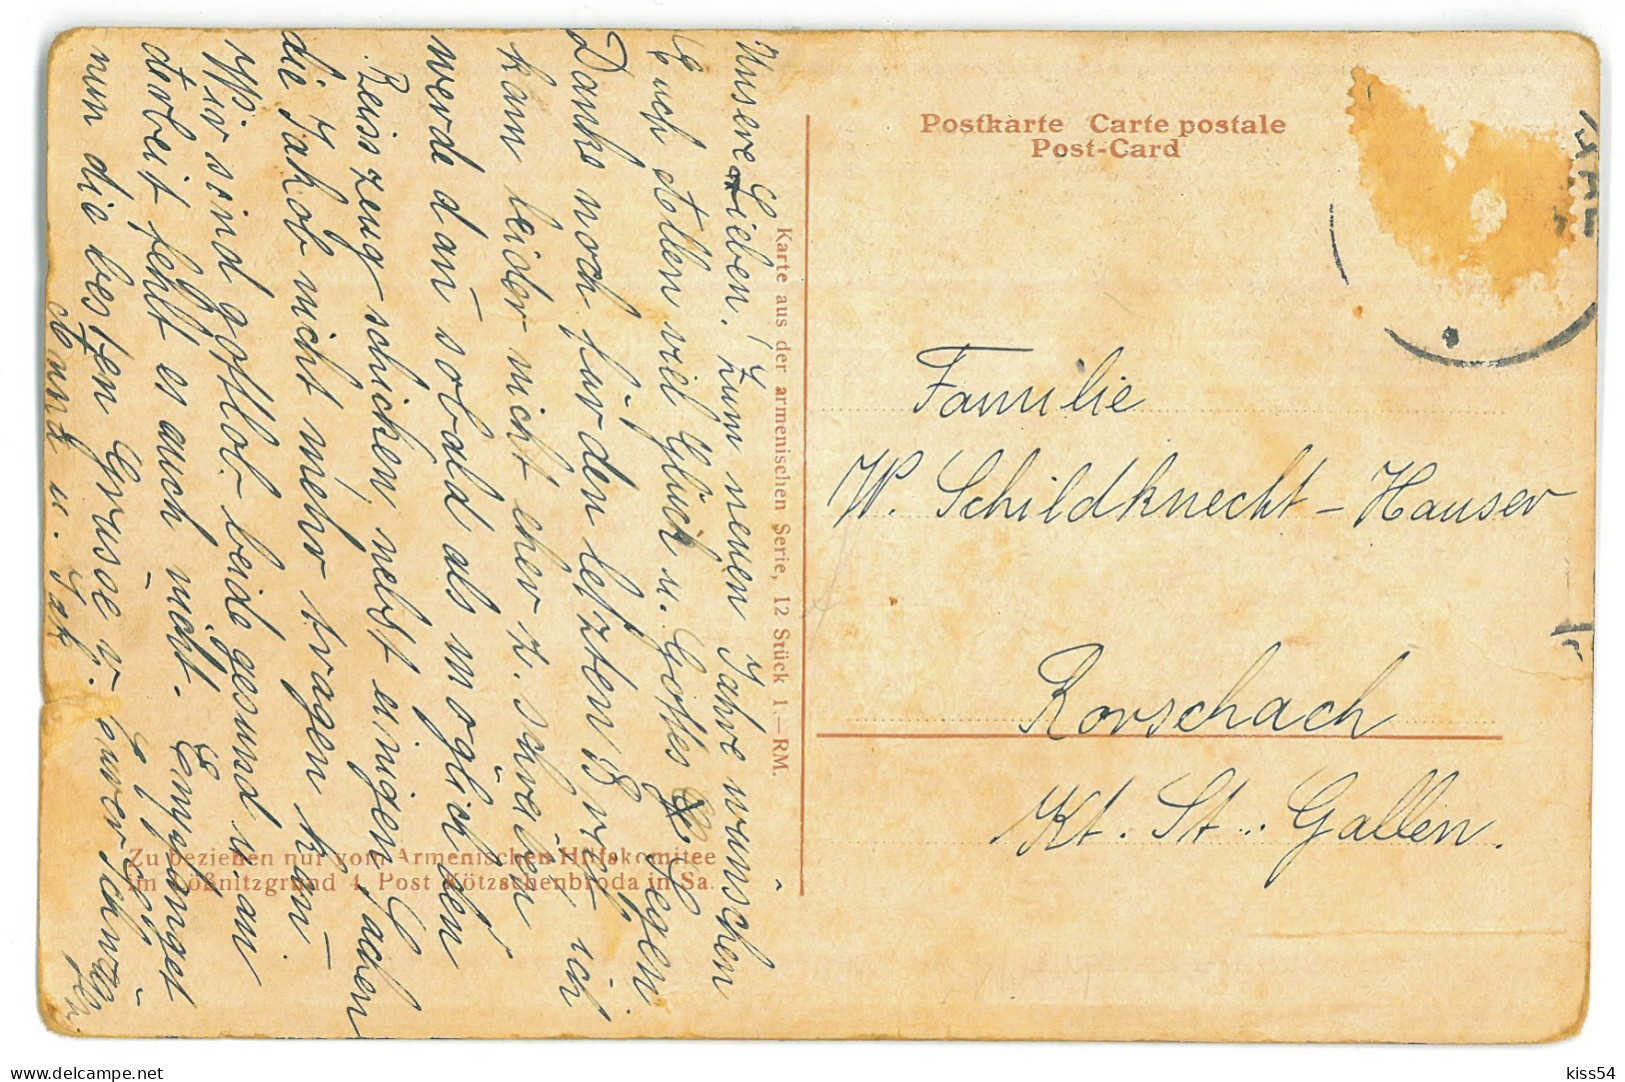 Postkarte Carte postale
Post-Card
Unsere Lieben! Zum neuen Jahre wünschen
Euch Allen viel Glück u. Gottes Segen
Danke noch für den letzten Brief. ich
kann leider nicht eher z. schreiben
werde dañ sobald als möglich den
Reisszeug schicken, nebst einigen Sachen
die Jakob nicht mehr tragen kañ
Wir sind gottlob beide gesund u. an
Arbeit fehlt es auch nicht. Empfanget
nun die besten Grüsse v. Eurer Schwäg.
Anna u. Jak.
Karte aus der armenischen Serie, 12 Stück 1.—RM.
Zu beziehen nur vom Armenischen Hilfskomitee
im Lößnitzgrund 4, Post Kötzschenbroda in Sa.
Familie
W. Schildknecht-Hauser
Rorschach
Kt. St. Gallen.
kiss54